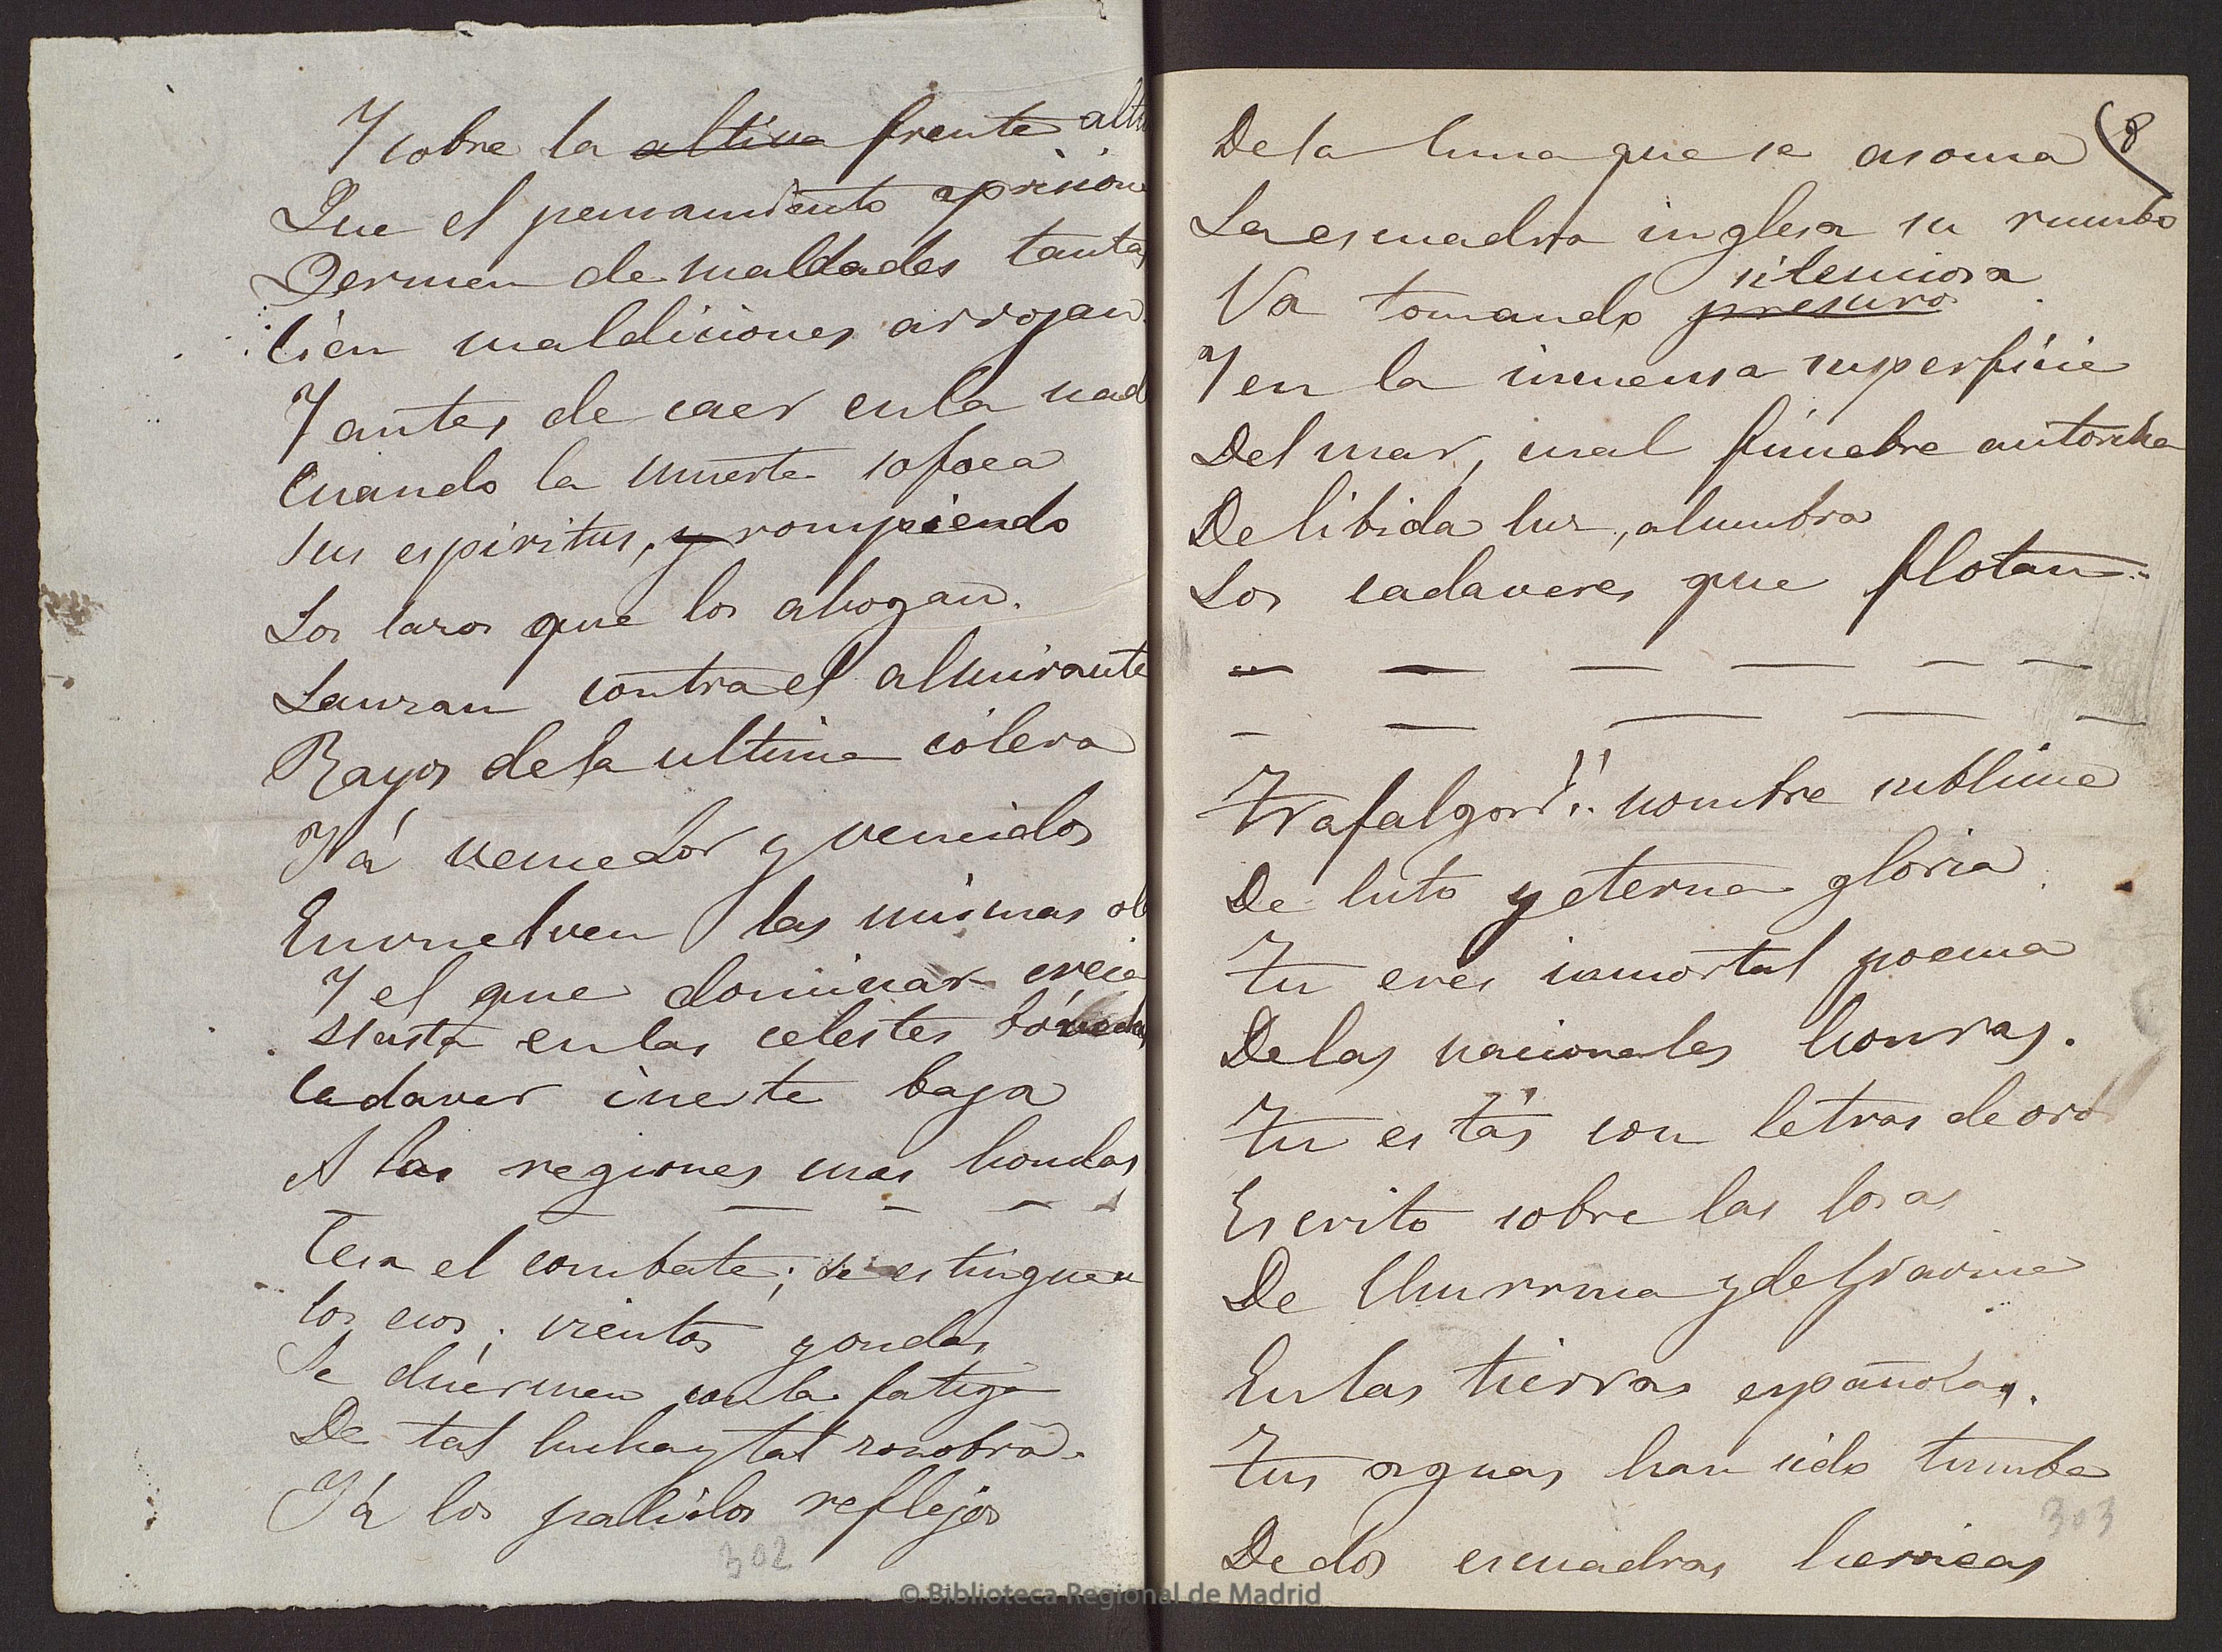 Y sobre la altiva frente alti
Que el pensamiento aprision
Germen de maldades tantas
Cien maldiciones arrojan.
Y antes de caer en la nad
Cuando la muerte sofoca
Sus espiritus, y rompiendo
Los lazos que los ahogan.
Lanzan contra el almirante
Rayos de la ultima cólera
Y á vencedor y vencidos
Envuelven las mismas ol
Y el que dominar creia
Hasta en las celestes bóvedas
Cadaver inerte baja
A las regiones mas hondas
Cesa el combate; se estinguen
los ecos; vientos y ondas
Se duérmen con la fatiga
De tal lucha y tal zozobra.
Y á los palidos reflejos
302
De la luna que se asoma
8
La escuadra inglesa su rumbo
silenciosa
Va tomando presuro
Y en la inmensa superficie
Del mar, cual fúnebre antorcha
De libida luz, alumbra
Los cadaveres que flotan
Trafalgar!! nombre sublime
De luto y eterna gloria
Tu eres inmortal poema
De las nacionales honras.
Tu estás con letras de oro
Escrito sobre las losas
De Churruca y de Gravina
En las tierras españolas.
Tus aguas han sido tumba
303
De dos escuadras heroicas
© Biblioteca Regional de Madrid